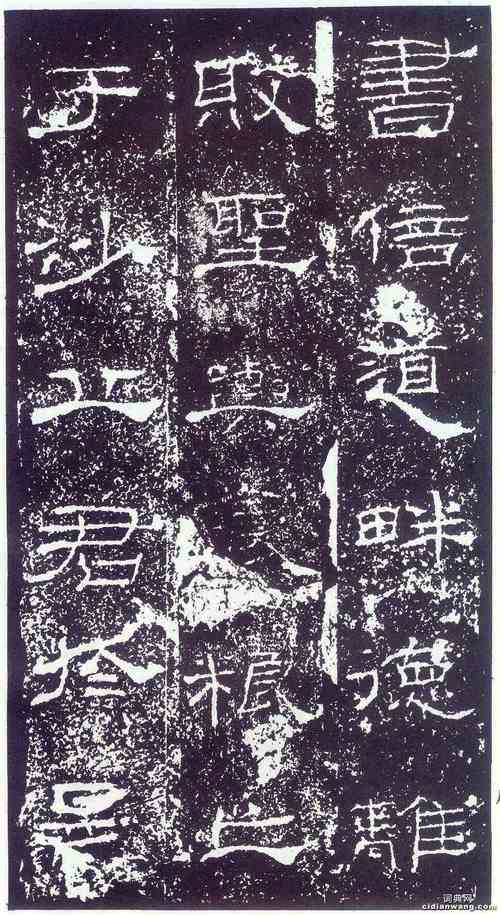 書倍道畔德離
敗聖輿食粮亡
于沙丘君於是
词典网
cidianwang.com